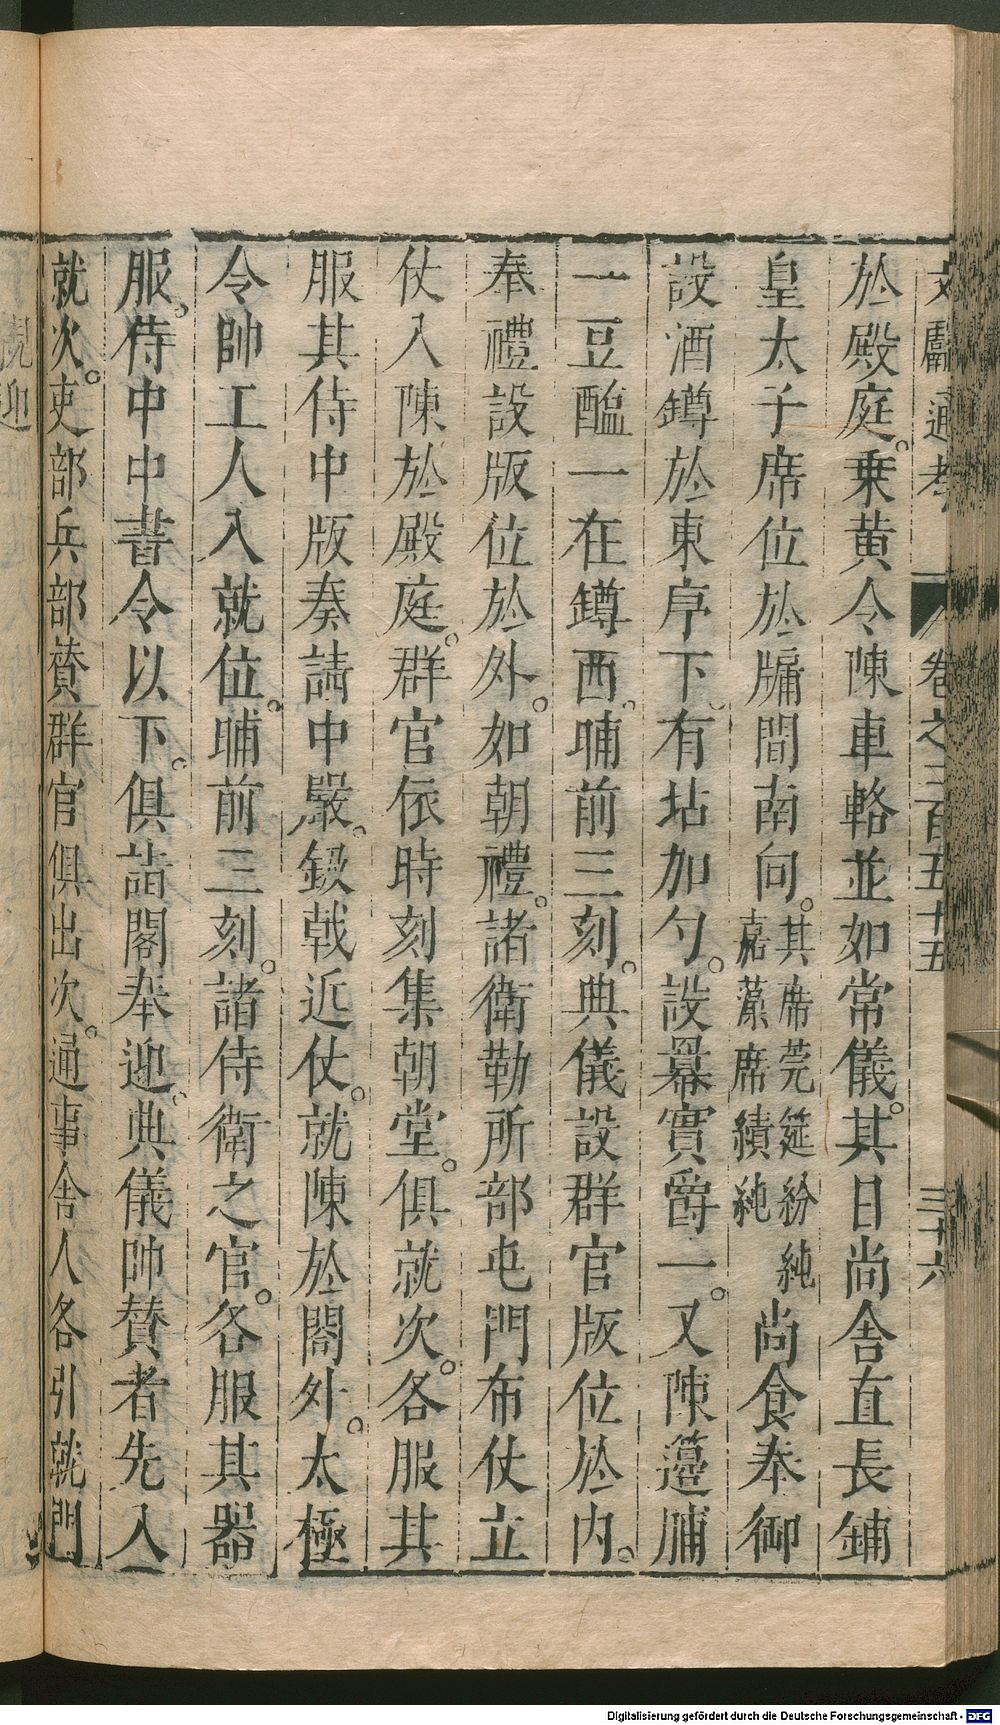 文獻通考 卷之二百五十五 三十六
於殿庭。乗黄令陳車輅並如常儀。其日尚舎直長鋪
皇太子席位於牖間南向。其席莞筵紛純嘉藻席繢純尚食奉御
設酒罇於東序下、有坫加勺。設羃實爵一。又陳籩脯
一豆醢一在罇西。晡前三刻。典儀設群官版位於内。
奉禮設版位於外。如朝禮。諸衛勒所部屯門布仗立
仗入陳於殿庭。群官依時刻集朝堂。俱就次。各服其
服其侍中版奏請中嚴。鈒戟近仗。就陳於閤外。太極
令帥工人入就位。晡前三刻。諸侍衛之官。各服其器
服。侍中中書令以下。俱詣閤奉迎。典儀帥賛者先入
就次。吏部兵部賛群官俱出次。通事舎人各引就門
Digitalisierung gefördert durch die Deutsche Forschungsgemeinschaft - DFG